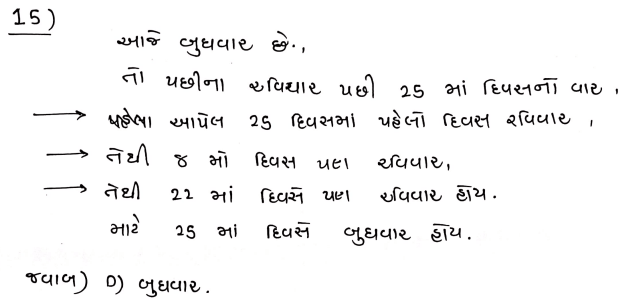 15)
આજે બુધવાર છે.,
તો પછીના રવિવાર પછી 25 માં દિવસનો વાર,
→ પહેલા આપેલ 25 દિવસમાં પહેલો દિવસ રવિવાર,
→ તેથી 8 મો દિવસ પણ રવિવાર,
→ તેથી 22 માં દિવસે પણ રવિવાર હોય.
માટે 25 માં દિવસે બુધવાર હોય.
જવાબ) D) બુધવાર.